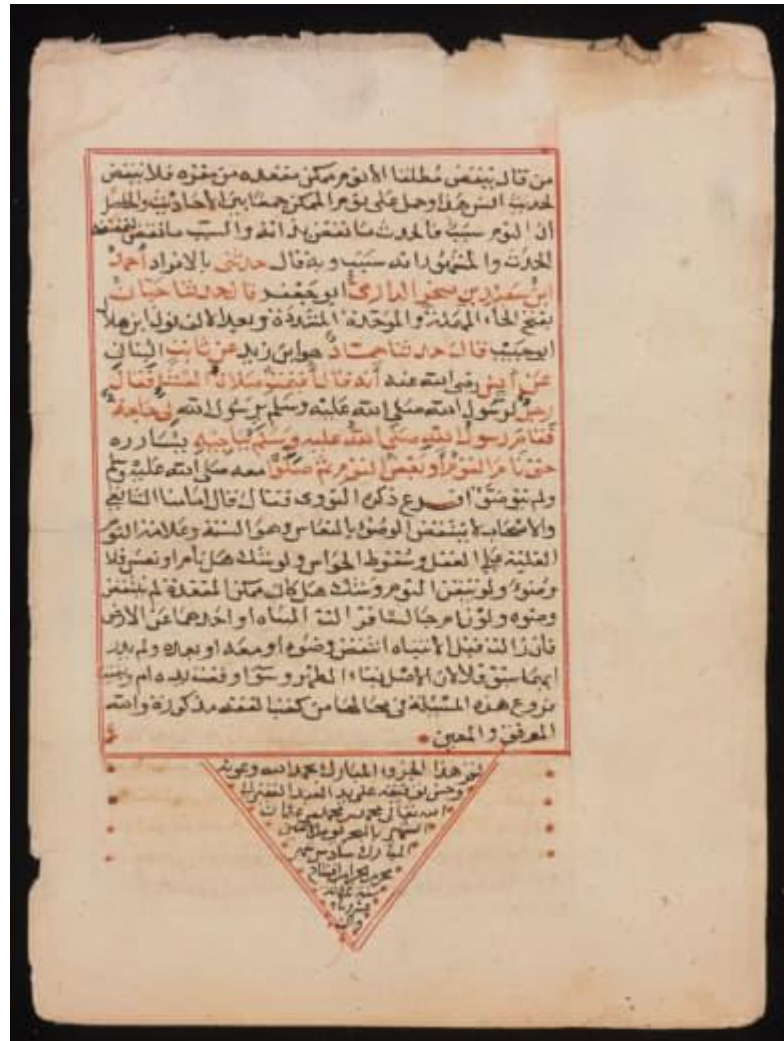 من قال ينقض مطلقا الا نوم ممكن مقعده من مقره فلا ينقض
لحديث انس هذا وحمل على نوم الممكن جمعا بين الأحاديث
ان النوم سبب فالحدث ما نقض بذاته والسبب ما نقض
الحدث والمشهور انه سبب وبه قال حدثنى بالافراد أحمد
ابن سعيد بن صخر الدارمى ابو جعفر قال حدثنا حبان
بفتح الحاء المهملة والموحدة المشددة وبعد الالف نون ابن هلال
ابو حبيب قال حدثنا حماد هو ابن زيد عن ثابت البنانى
عن أنس رضى الله عنه أنه قال أقيمت صلاة العشاء فقال
رجل لرسول الله صلى الله عليه وسلم يرسول الله لى حاجة
فقام رسول الله صلى الله عليه وسلم يناجيه يسارره
حتى نام القوم أو بعض القوم ثم صلوا معه صلى الله عليه وسلم
ولم يتوضؤا فرع ذكره النووى فقال قال امامنا الشافعى
والاصحاب لا ينتقض الوضوء بالنعاس وهو السنة وعلامة النوم
الغلبة على العقل وسقوط الحواس ولو شك هل نام او نعس فلا
وضوء ولو تيقن النوم وشك هل كان ممكن المقعدة لم ينتقض
وضوءه ولو نام جالسا فزالت الياه او احداهما عن الارض
فان زالت قبل الانتباه انتقض وضوءه او معه او بعده ولم يدر
ايهما سبق فلا لان الاصل بقاء الطهر وسوا وقعت يده ام
فروع هذه المسئلة فى محالها من كتب الفقه مذكورة والله
الموفق والمعين
نجز هذا الجزء المبارك بحمد الله وعونه
وحسن توفيقه على يد العبد الفقير الى
الله تعالى محمد بن محمد
الشهير
المبارك سادس عشر
محرم الحرام افتتاح
سنة
وعشرين
والف